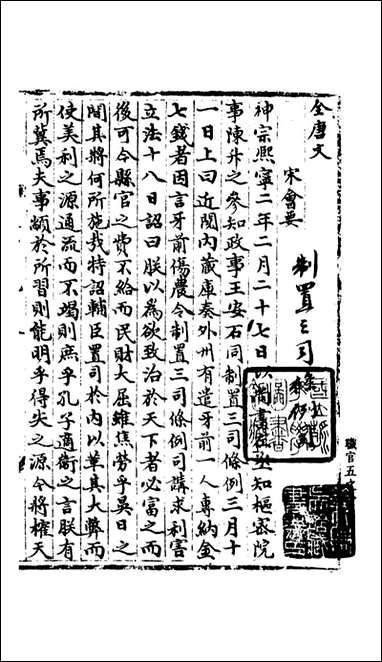 全唐文
宋會要
制置三司條例
神宗熙寧二年二月二十七日以樞密院
事陳升之參知政事王安石同制置三司條例三月十
一日上曰近閱内藏庫奏外州有遣牙前一人專納金
七錢者因言牙前傷農令制置三司條例司講求利害
立法十八日詔曰朕以為欲致治於天下者必富之而
後可令縣官之費不給而民財大屈雖焦勞乎昊日之
間其將何所施哉特詔輔臣置司於内以革其大弊而
使美利之源通流而不竭則庶乎孔子適衛之言朕有
所冀焉夫事顓於所習則能明乎得失之源今將榷天
職官五